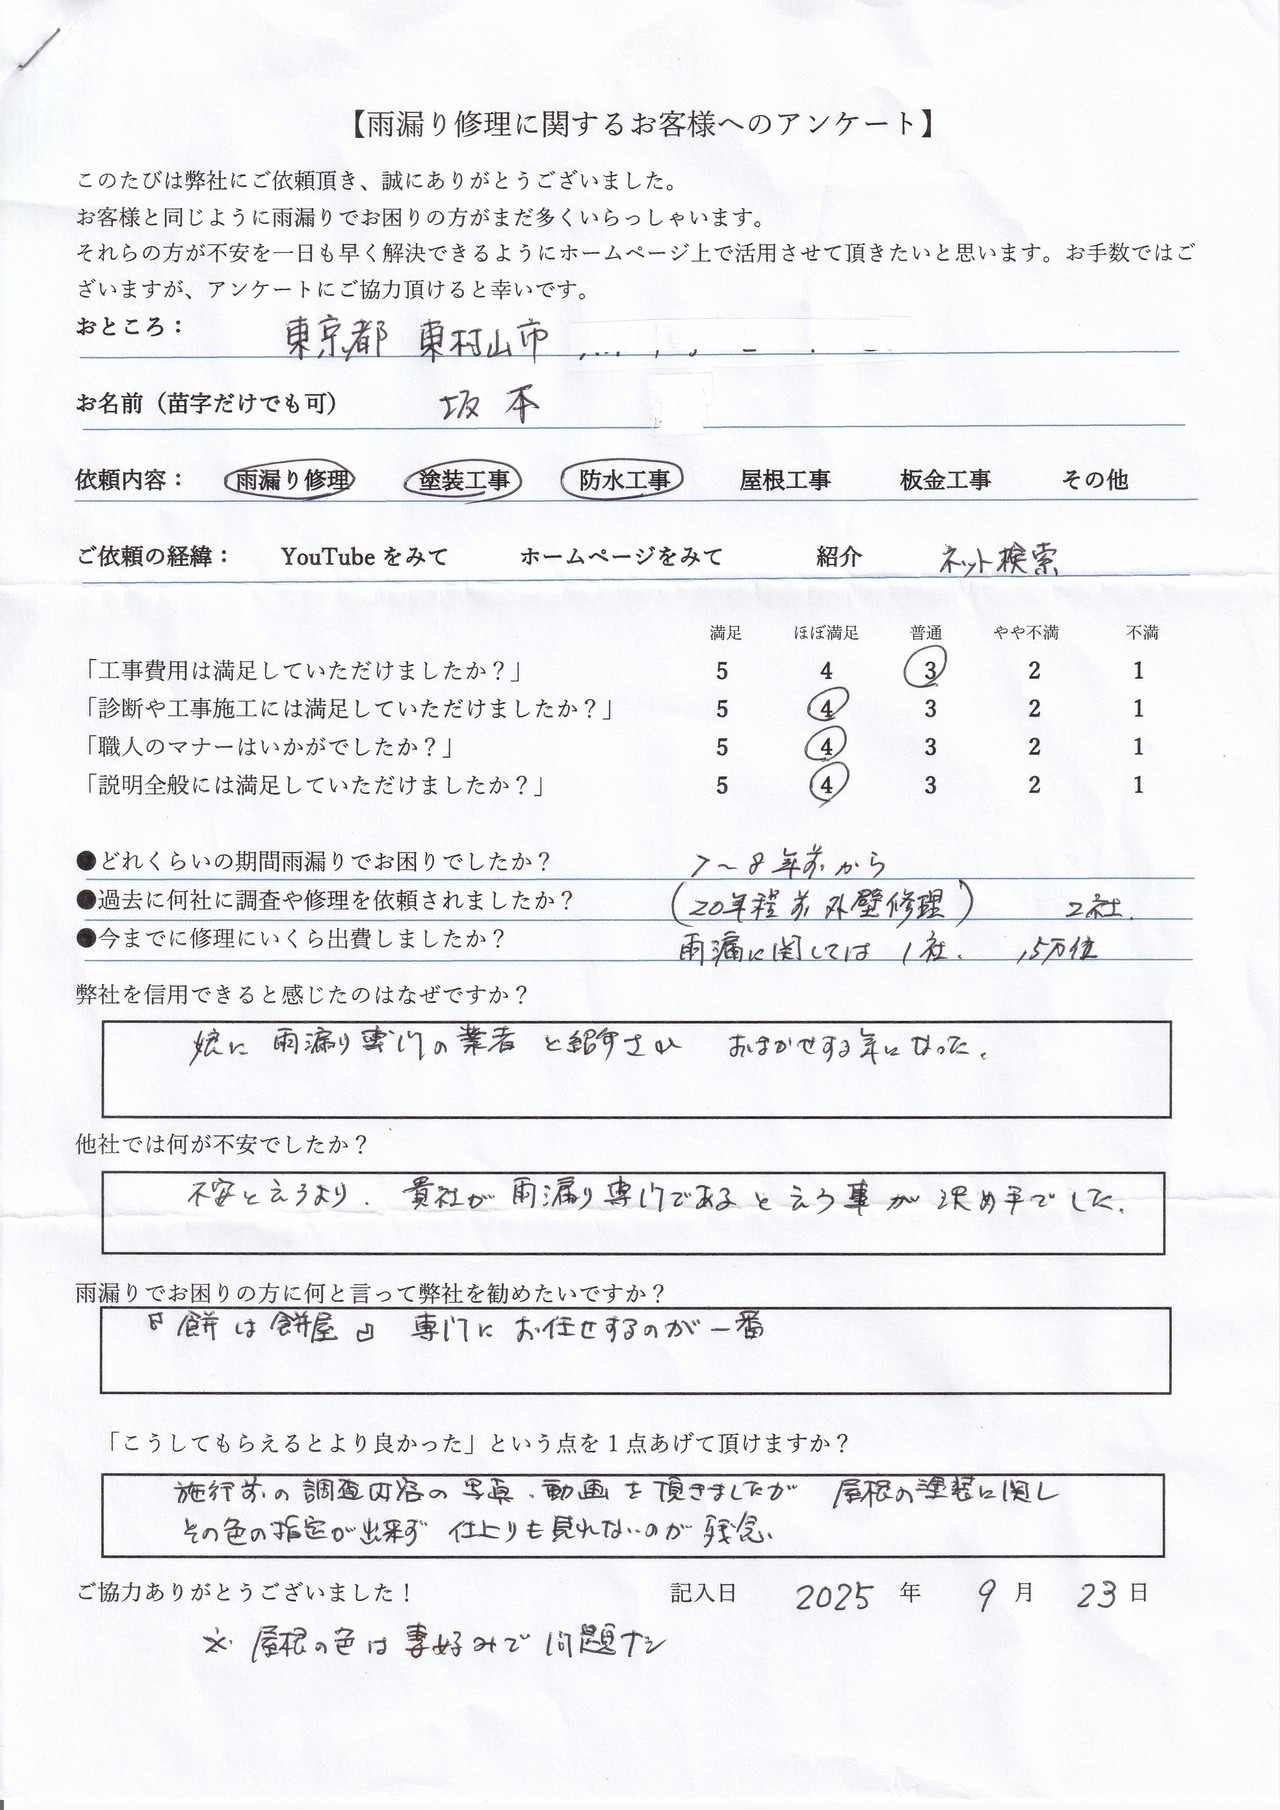 【雨漏り修理に関するお客様へのアンケート】
このたびは弊社にご依頼頂き、誠にありがとうございました。
お客様と同じように雨漏りでお困りの方がまだ多くいらっしゃいます。
それらの方が不安を一日も早く解決できるようにホームページ上で活用させて頂きたいと思います。お手数ではご
ざいますが、アンケートにご協力頂けると幸いです。
おところ： 東京都 東村山市
お名前（苗字だけでも可） 坂本
依頼内容： 雨漏り修理 塗装工事 防水工事 屋根工事 板金工事 その他
ご依頼の経緯： YouTubeをみて ホームページをみて 紹介 ネット検索
満足 ほぼ満足 普通 やや不満 不満
「工事費用は満足していただけましたか？」 5 4 3 2 1
「診断や工事施工には満足していただけましたか？」 5 4 3 2 1
「職人のマナーはいかがでしたか？」 5 4 3 2 1
「説明全般には満足していただけましたか？」 5 4 3 2 1
●どれくらいの期間雨漏りでお困りでしたか？ 7〜8年前から
●過去に何社に調査や修理を依頼されましたか？ (20年程前外壁修理) 2社.
●今までに修理にいくら出費しましたか？ 雨漏に関しては 1社. 15万位
弊社を信用できると感じたのはなぜですか？
娘に 雨漏り専門の業者 と紹介され おまかせする事になった。
他社では何が不安でしたか？
不安と云うより. 貴社が 雨漏り専門であると云う事が 決め手でした.
雨漏りでお困りの方に何と言って弊社を勧めたいですか？
『餅は餅屋』 専門に お任せするのが一番
「こうしてもらえるとより良かった」という点を１点あげて頂けますか？
施行前の調査内容の写真、動画を頂きましたが 屋根の塗装に関し
その色の指定が出来ず 仕上りも見れないのが 残念、
ご協力ありがとうございました！ 記入日 2025 年 9 月 23 日
※ 屋根の色は妻好みで 問題ナシ